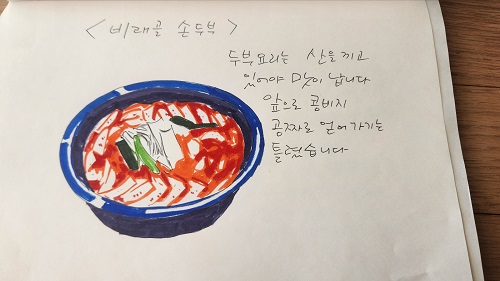 <비래골 손두부>
두부요리는 산을끼고
있어야 맛이 납니다
앞으로 콩비지
공짜로 얻어가기는
틀렸습니다